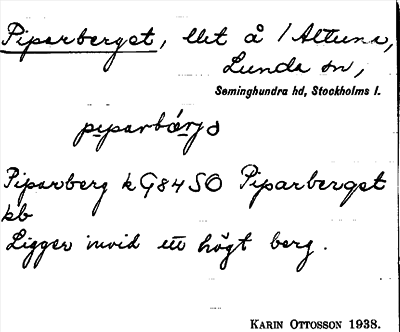 Piparberget, llet å / Altuna,
Lunda sn,
Seminghundra hd, Stockholms l.
Piparberg k G84SO Piparberget
kb
Ligger invid ett högt berg.
KARIN OTTOSSON 1938.